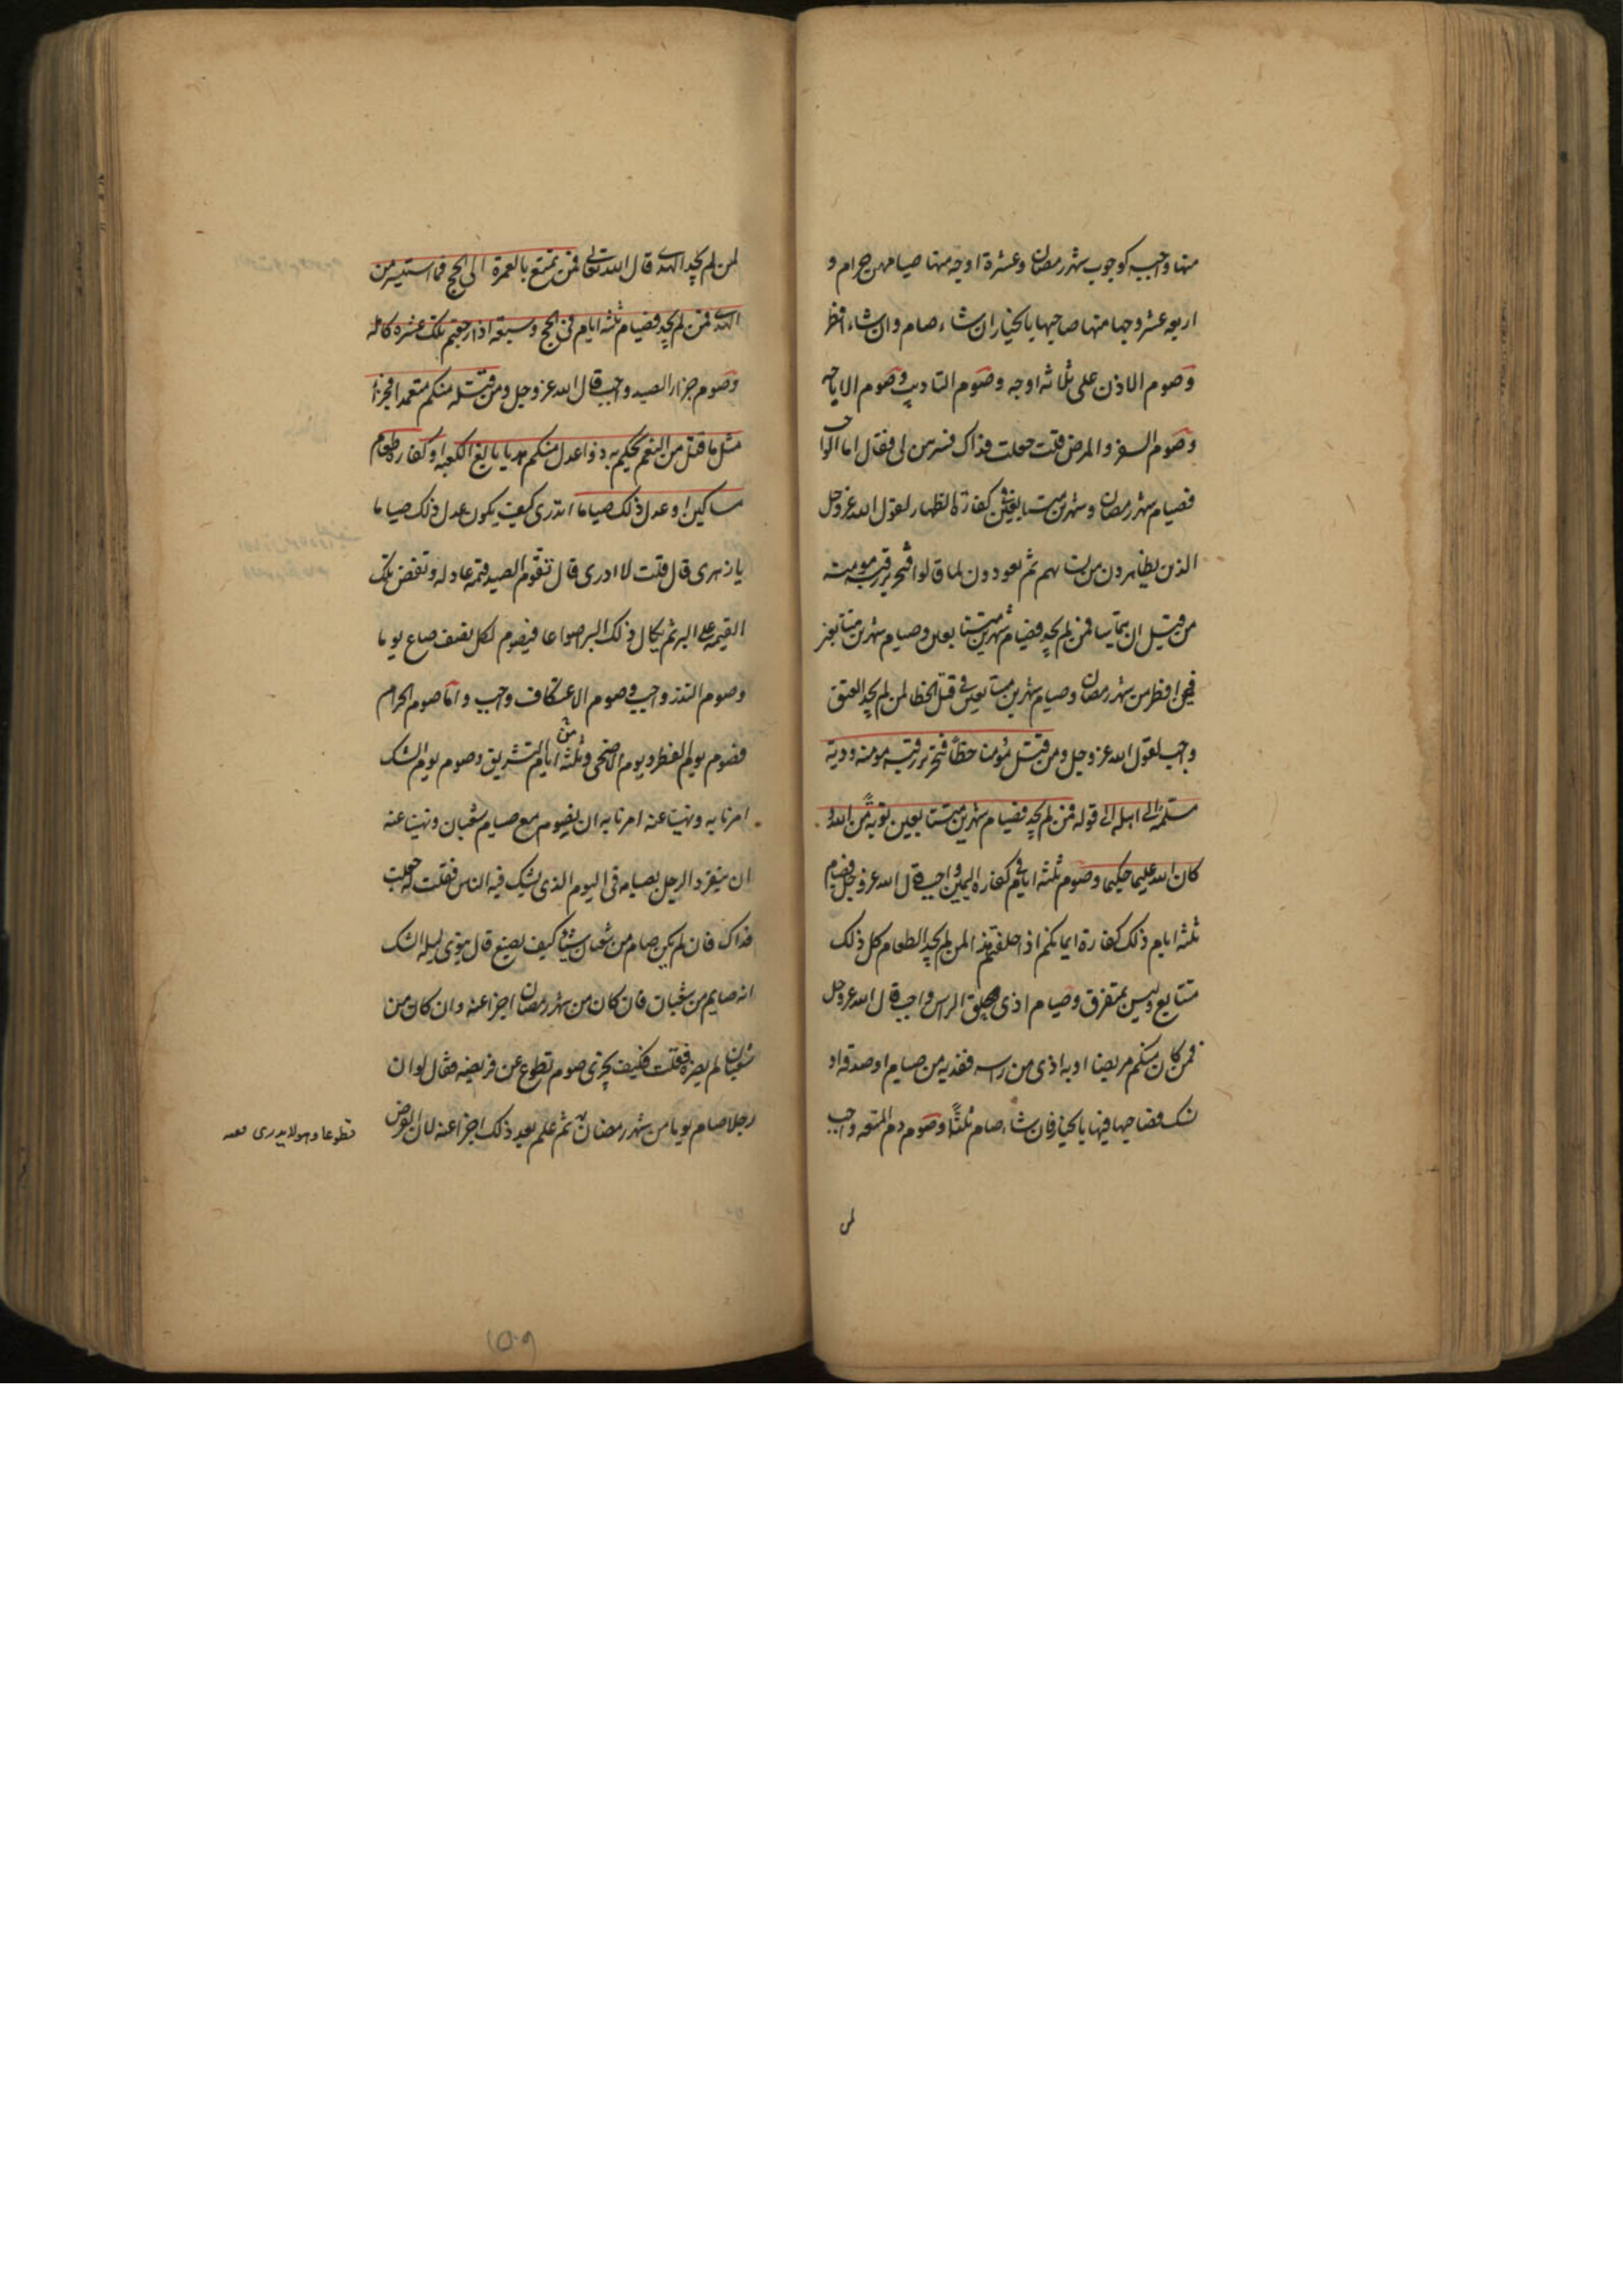 منها واجبه كوجوب شهر رمضان وعشرة اوجه منها صيامهن حرام و
اربعه عشر وجها منها صاحبها بالخيار ان شاء صام وان شاء افطر
وصوم الاذن على ثلاثه اوجه وصوم التاديب وصوم الاباحه
وصوم السفر والمرض قلت جعلت فداك فسرهن لى فقال اما الواجب
فصيام شهر رمضان وشهرين متتابعين كفارة الظهار لقول الله عز وجل
الذين يظاهرون من نسائهم ثم يعودون لما قالوا فتحرير رقبه مومنه
من قبل ان يتماسا فمن لم يجد فصيام شهرين متتابعين وصيام شهرين متتابعين
فيمن افطر من شهر رمضان وصيام شهرين متتابعين فى قتل الخطا لمن لم يجد العتق
واجب لقول الله عز وجل ومن قتل مؤمنا خطأ فتحرير رقبه مومنه ودية
مسلمة الى اهله الى قوله فمن لم يجد فصيام شهرين متتابعين توبة من الله و
كان الله عليما حكيما وصوم ثلثه ايام فى كفاره اليمين واجب قال الله عز وجل فصيام
ثلثه ايام ذلك كفارة ايمانكم اذا حلفتم هذا لمن لم يجد الطعام كل ذلك
متتابع وليس بمتفرق وصيام اذى حلق الراس واجب قال الله عز وجل
فمن كان منكم مريضا او به اذى من راسه ففديه من صيام او صدقه او
نسك فصاحبها فيها بالخيار فان شاء صام ثلثا وصوم دم المتعه واجب
لمن
لمن لم يجد الهدى قال الله تعالى فمن تمتع بالعمرة الى الحج فما استيسر من
الهدى فمن لم يجد فصيام ثلثه ايام فى الحج وسبعه اذا رجعتم تلك عشره كامله
وصوم جزاء الصيد واجب قال الله عز وجل ومن قتله منكم متعمدا فجزاء
مثل ما قتل من النعم يحكم به ذوا عدل منكم هديا بالغ الكعبه او كفاره طعام
مساكين او عدل ذلك صياما اتدرى كيف يكون عدل ذلك صياما
يا زهرى قال قلت لا ادرى قال تقوم الصيد قيمه عادله وتفض تلك
القيمه على البر ثم يكال ذلك البر اصواعا فيصوم لكل نصف صاع يوما
وصوم النذر واجب وصوم الاعتكاف واجب واما صوم الحرام
فصوم يوم الفطر ويوم الاضحى وثلثه ايام من التشريق وصوم يوم الشك
امرنا به ونهينا عنه امرنا به ان نصوم مع صيام شعبان ونهينا عنه
ان ينفرد الرجل بصيامه فى اليوم الذى يشك فيه الناس فقلت له جعلت
فداك فان لم يكن صام من شعبان شيئا كيف يصنع قال ينوى ليله الشك
انه صايم من شعبان فان كان من شهر رمضان اجزا عنه وان كان من
شعبان لم يضره فقلت فكيف يجزى صوم تطوع عن فريضه فقال لو ان
رجلا صام يوما من شهر رمضان ثم علم بعد ذلك اجزا عنه لان الفرض
تطوعا وهو لا يدرى